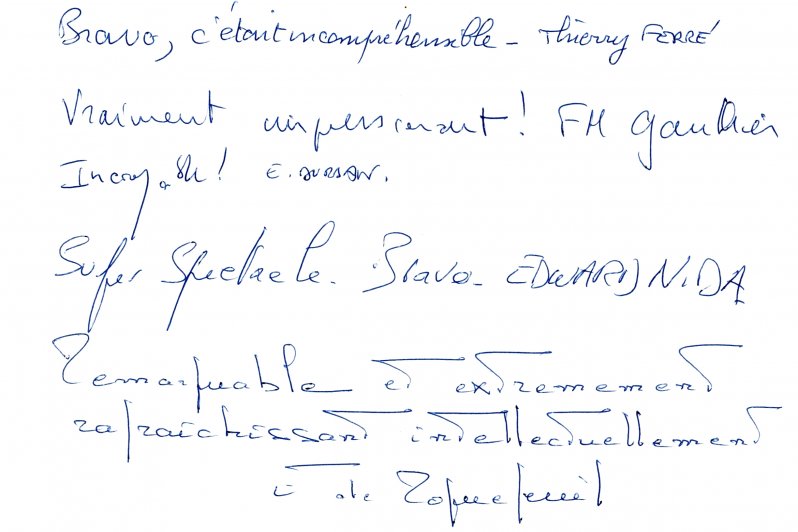 Bravo, c'était incompréhensible - Thierry FERRÉ
Vraiment impressionnant ! FH Gauthier
Incroyable ! E. DURSAN.
Super Spectacle. Bravo - EDWARD NIDA
Remarquable et extremement
rafraichissant intellectuellement
E de Roquefeuil